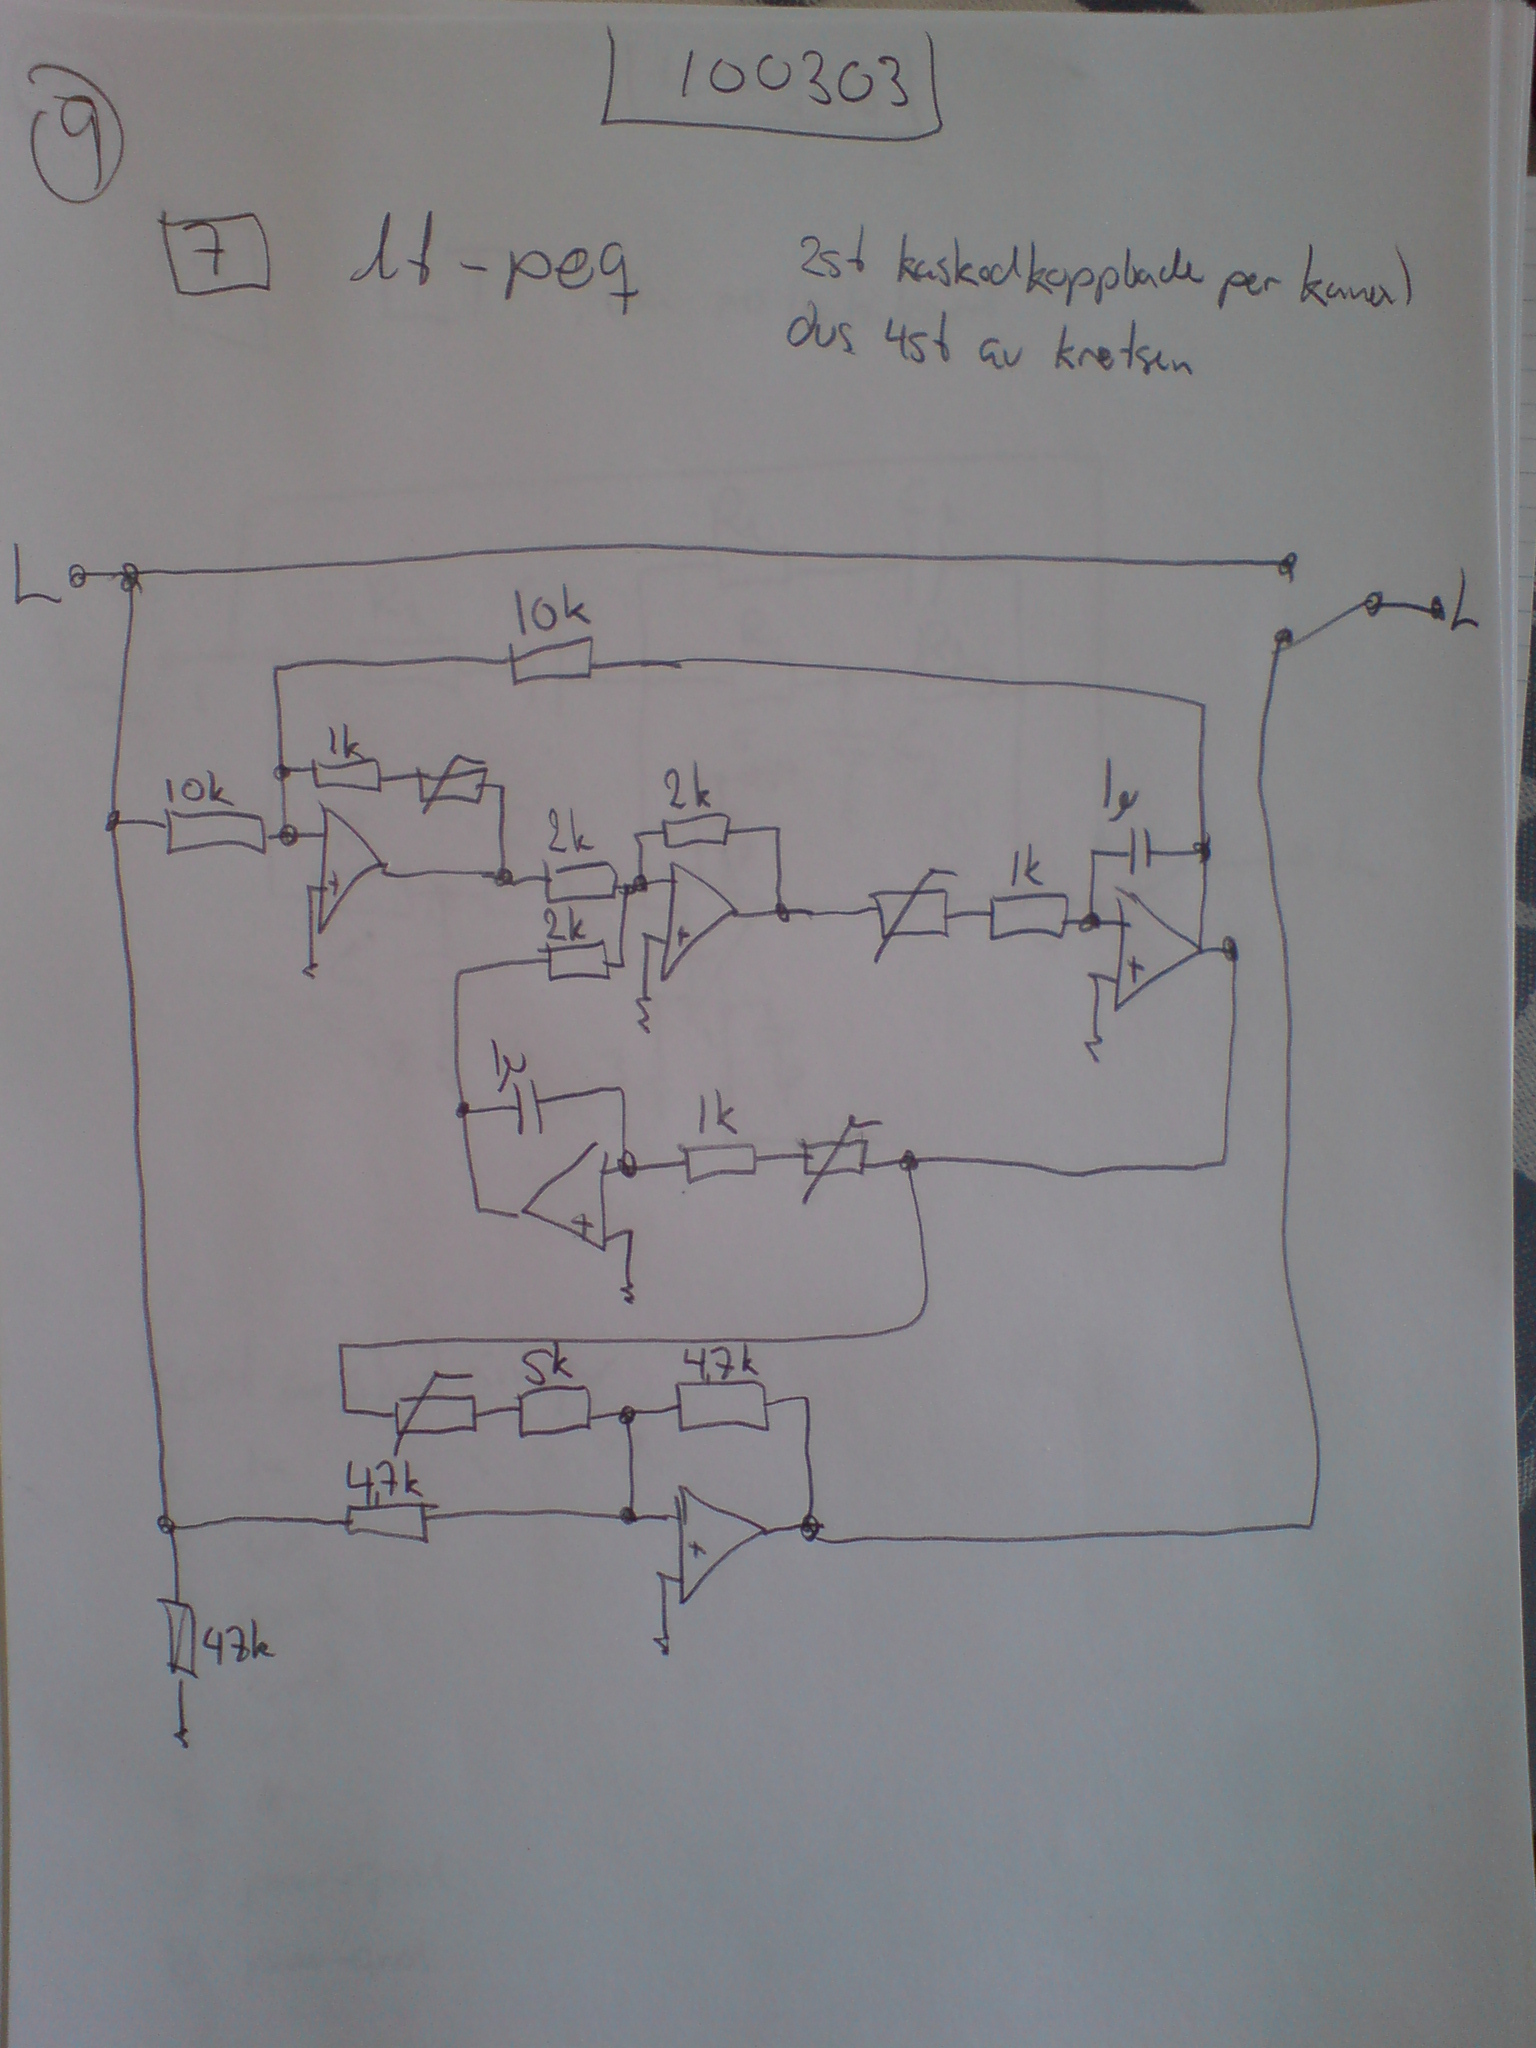 9
100303
7 lf-peq
2st kaskodkopplade per kanal
dvs 4st av kretsen
L
L
10k
1k
10k
2k
2k
1µ
2k
1k
+
+
+
1µ
1k
+
5k
4,7k
4,7k
+
47k